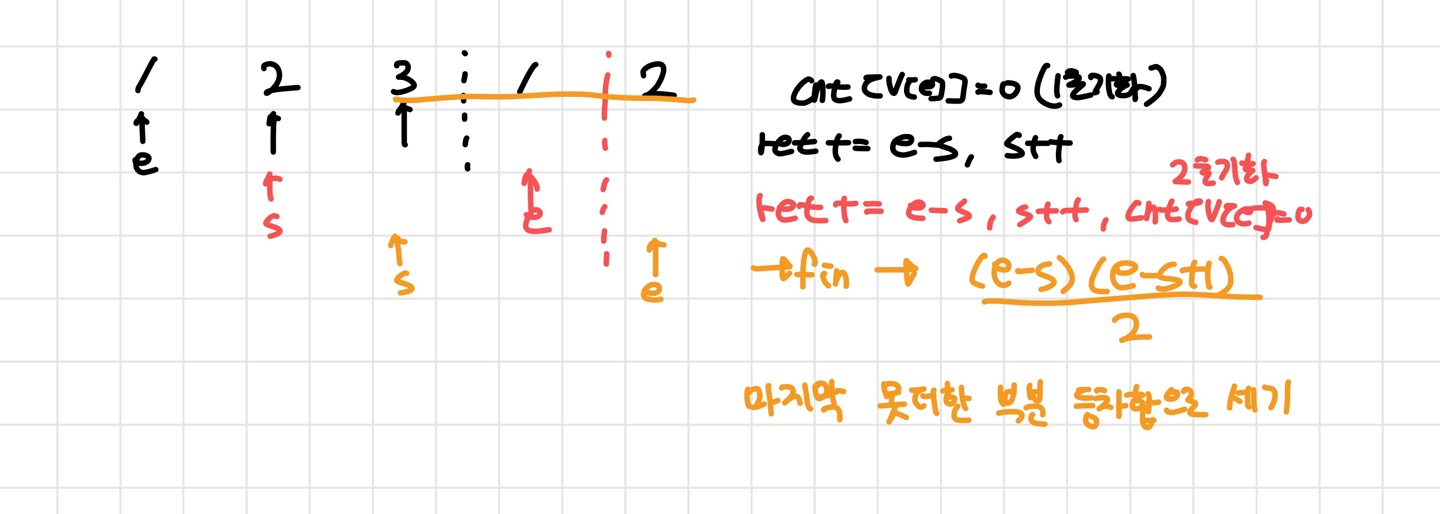 1 2 3 1 2
e
s
e
s
e
cnt[v[e]]=0 (1초기화)
ret += e-s, s++
2초기화
ret += e-s, s++, cnt[v[e]]=0
→fin → (e-s)(e-s+1)
2
마지막 못더한 부분 등차합으로 세기